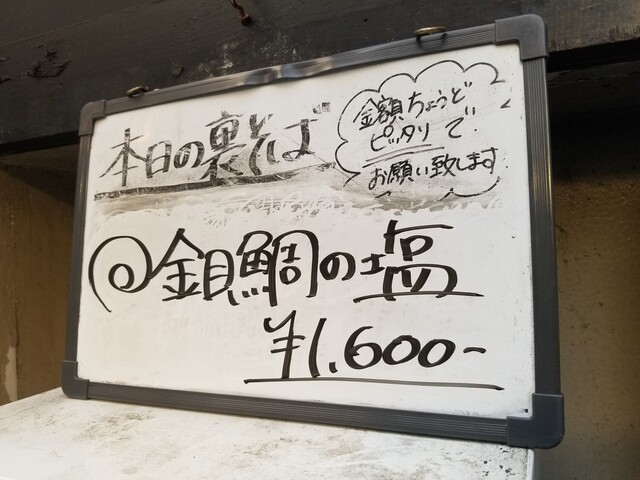 本日の裏そば
金額ちょうど
ピッタリで
お願い致します
金目鯛の塩
¥1,600-